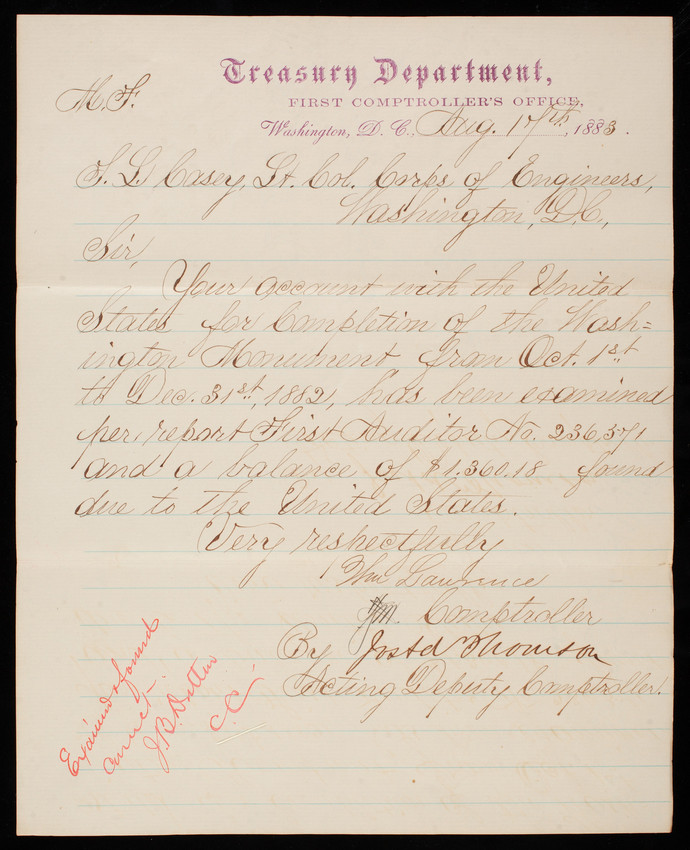 Treasury Department,
M. F.
FIRST COMPTROLLER'S OFFICE,
Washington, D. C., Aug. 17th, 1883.
T. L. Casey, Lt. Col. Corps of Engineers,
Washington, D.C.,
Sir,
Your account with the United
States for Completion of the Wash=
ington Monument from Oct. 1st
to Dec. 31st, 1882, has been examined
per report First Auditor No. 236,571
and a balance of $1.360.18 found
due to the United States.
Very respectfully
Wm Lawrence
Comptroller
By Thomson
Acting Deputy Comptroller.
Examined & found
correct.
J. B. Dutton
C.C.